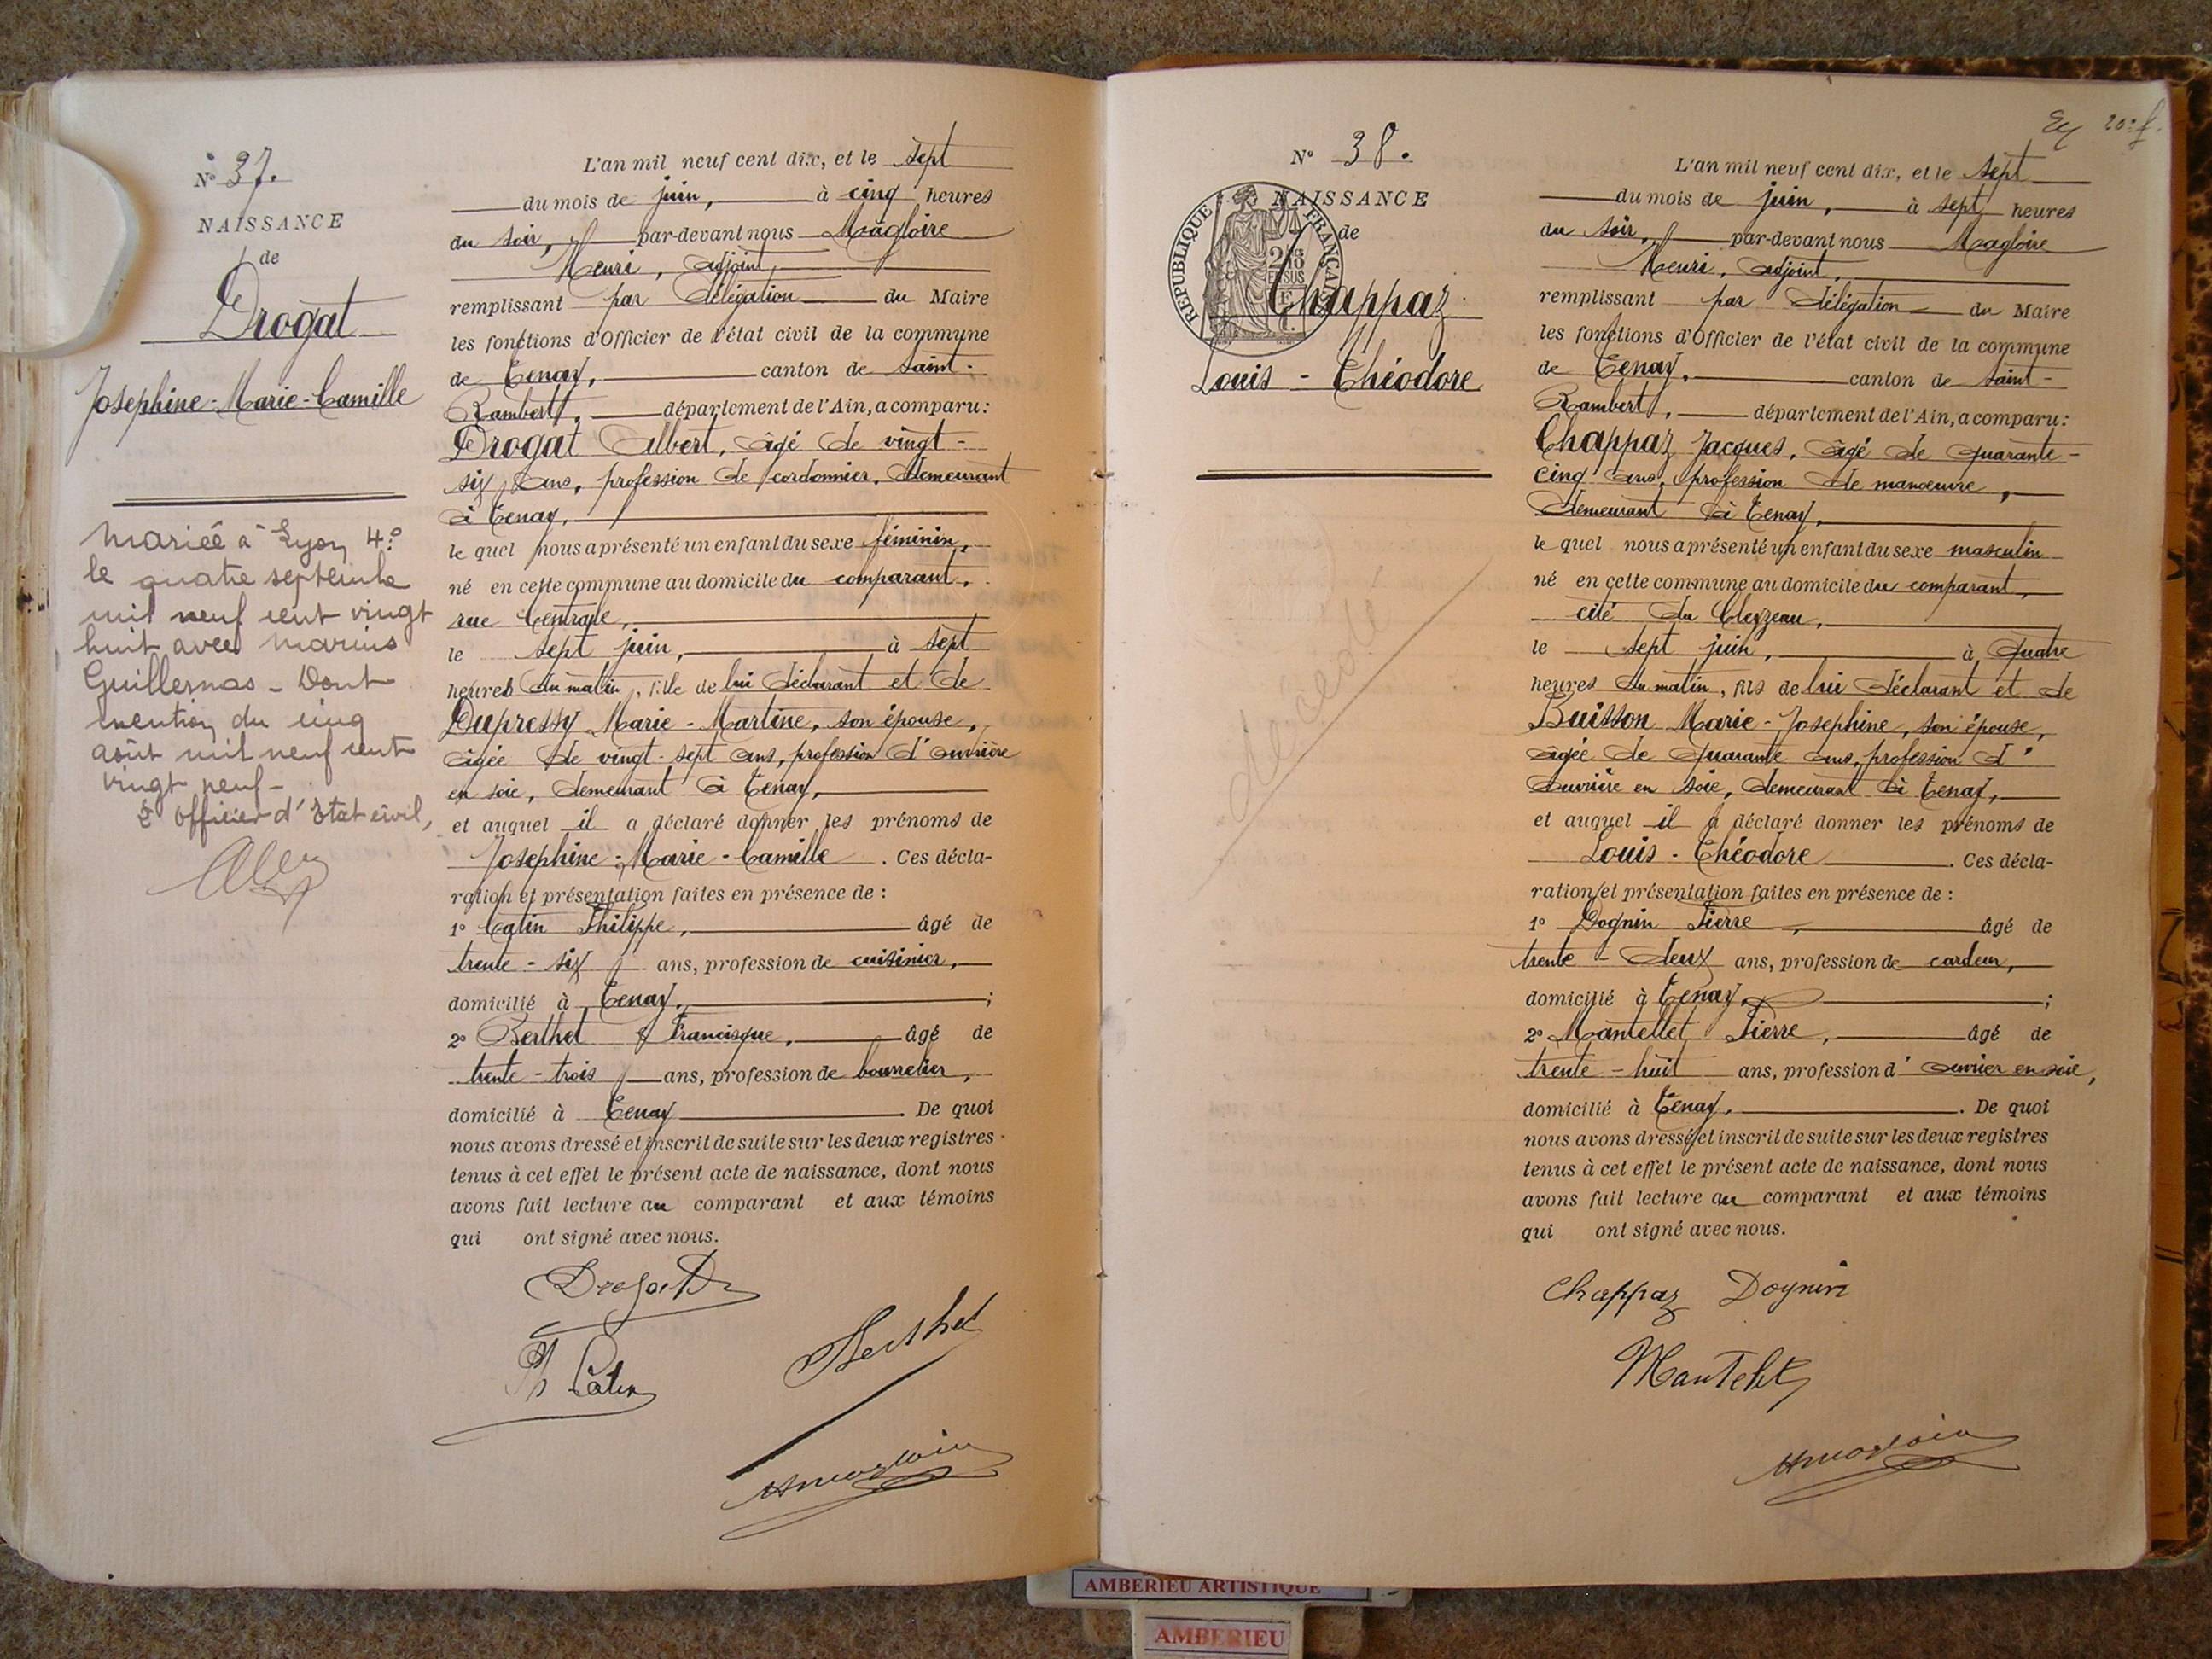 N° 37.
NAISSANCE
de
Drogat
Josephine-Marie-Camille
mariée à Lyon 4e
le quatre septembre
mil neuf cent vingt
huit avec Marius
Guillermas - Dont
mention du cinq
août mil neuf cent
vingt neuf -
L'officier d'Etat civil,
L'an mil neuf cent dix, et le sept
du mois de juin, à cinq heures
du soir, par-devant nous Magloire
Henri, adjoint,
remplissant par délégation du Maire
les fonctions d'Officier de l'état civil de la commune
de Tenay, canton de Saint-
Rambert, département de l'Ain, a comparu:
Drogat Albert, âgé de vingt-
six ans, profession de cordonnier, demeurant
à Tenay,
le quel nous a présenté un enfant du sexe féminin,
né en cette commune au domicile du comparant,
rue Centrale,
le sept juin, à sept
heures du matin, fille de lui déclarant et de
Dupressy Marie-Martine, son épouse,
âgée de vingt-sept ans, profession d'ouvrière
en soie, demeurant à Tenay,
et auquel il a déclaré donner les prénoms de
Josephine-Marie-Camille. Ces décla-
ration et présentation faites en présence de :
1° Catin Philippe, âgé de
trente-six ans, profession de cuisinier,
domicilié à Tenay, ;
2° Berthet Francisque, âgé de
trente-trois ans, profession de bourrelier,
domicilié à Tenay. De quoi
nous avons dressé et inscrit de suite sur les deux registres
tenus à cet effet le présent acte de naissance, dont nous
avons fait lecture au comparant et aux témoins
qui ont signé avec nous.
Drogat
Ph Catin
Berthet
HMagloire
20e f.
N° 38.
NAISSANCE
de
REPUBLIQUE FRANÇAISE
Chappaz
Louis-Théodore
décédé
L'an mil neuf cent dix, et le sept
du mois de juin, à sept heures
du soir, par-devant nous Magloire
Henri, adjoint,
remplissant par délégation du Maire
les fonctions d'Officier de l'état civil de la commune
de Tenay, canton de Saint-
Rambert, département de l'Ain, a comparu:
Chappaz Jacques, âgé de quarante-
cinq ans, profession de manœuvre,
demeurant à Tenay,
le quel nous a présenté un enfant du sexe masculin
né en cette commune au domicile du comparant,
cité du Cleyzeau,
le sept juin, à quatre
heures du matin, fils de lui déclarant et de
Buisson Marie-Josephine, son épouse,
âgée de quarante ans, profession d'
ouvrière en soie, demeurant à Tenay,
et auquel il a déclaré donner les prénoms de
Louis-Théodore. Ces décla-
ration et présentation faites en présence de :
1° Dognin Pierre, âgé de
trente-deux ans, profession de cardeur,
domicilié à Tenay, ;
2° Mantellet Pierre, âgé de
trente-huit ans, profession d'ouvrier en soie,
domicilié à Tenay. De quoi
nous avons dressé et inscrit de suite sur les deux registres
tenus à cet effet le présent acte de naissance, dont nous
avons fait lecture au comparant et aux témoins
qui ont signé avec nous.
Chappaz Dognin
Mantellet
HMagloire
AMBERIEU ARTISTIQUE
AMBERIEU